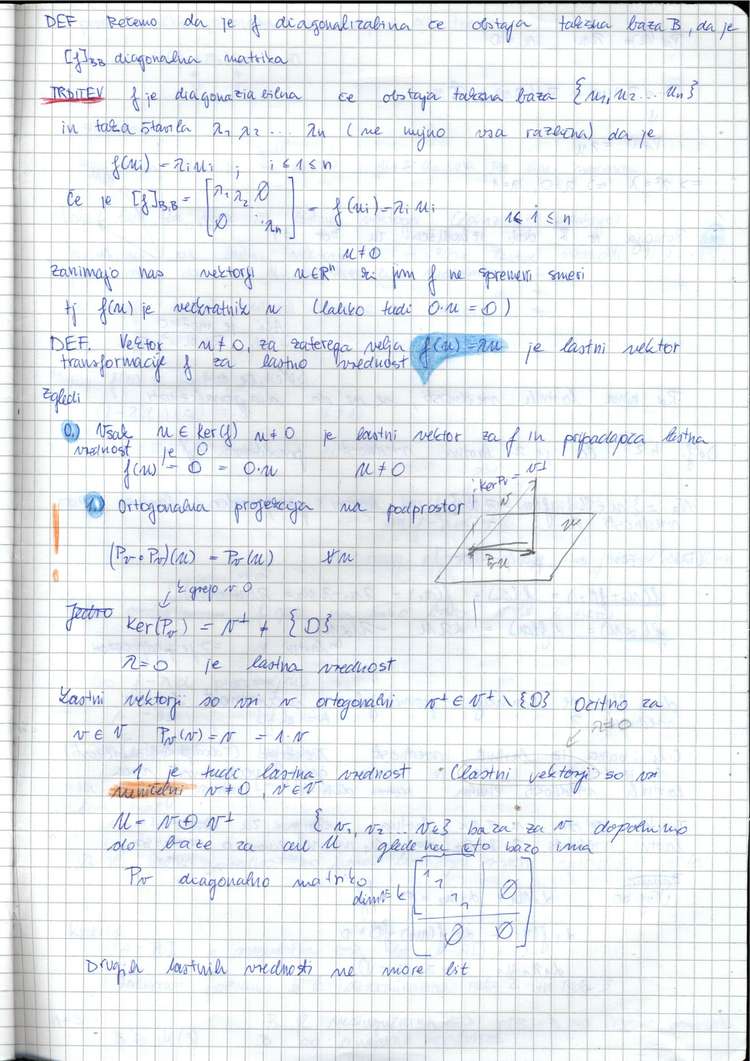 DEF Rečemo da je f diagonalizabilna če obstaja takšna baza B, da je
[f]BB diagonalna matrika
TRDITEV f je diagonaziabilna če obstaja takšna baza {u1, u2 ... un}
in taka števila λ1 λ2 ... λn (ne nujno vsa različna) da je
f(ui) = λiui ; i ≤ 1 ≤ n
Če je [f]B,B = [λ1 λ2 0 0 λn] - f(ui) = λi ui 1 ≤ i ≤ n
u ≠ 0
Zanimajo nas vektorji u ∈ R^n ki jim f ne spremeni smeri
tj f(u) je večkratnik u (lahko tudi 0·u = 0)
DEF. Vektor u ≠ 0, za katerega velja f(u) = λu je lastni vektor
transformacije f za lastno vrednost
Zgledi
0.) Vsak u ∈ ker(f) u ≠ 0 je lastni vektor za f in pripadajoča lastna
vrednost je 0
f(u) = 0 = 0·u u ≠ 0
ker Pv = v⊥
v
v
Pvu
! 1.) Ortogonalna projekcija na podprostor
(Pv ∘ Pv)(u) = Pv(u) ∀u
k grejo v 0
Jedro ker(Pv) = v⊥ ≠ {0}
λ=0 je lastna vrednost
Lastni vektorji so vsi v ortogonalni v⊥ ∈ v⊥ \ {0} Očitno za
λ≠0
v ∈ V Pv(v) = v = 1·v
1 je tudi lastna vrednost (lastni vektorji so vsi
neničelni v ≠ 0, v ∈ V
U = V ⊕ V⊥ {v1, v2 ... vk} baza za V dopolnimo
do baze za cel U glede na to bazo ima
Pv diagonalno matriko
dim V = k [1 1 1 1 0 0 0]
Drugih lastnih vrednosti ne more bit